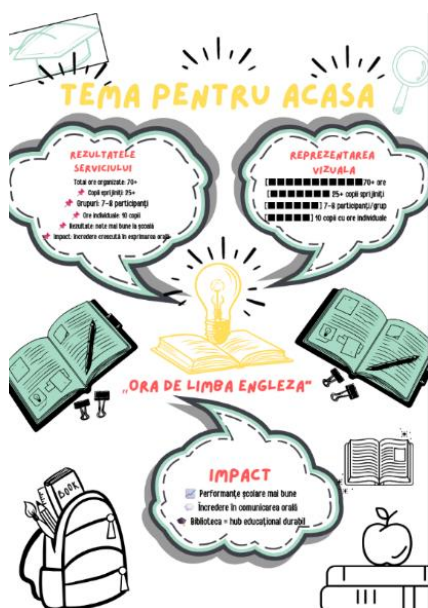 TEMA PENTRU ACASA
REZULTATELE
SERVICIULUI
Total ore organizate: 70+
📌 Copii sprijiniți: 25+
📌 Grupuri: 7-8 participanți
📌 Ore individuale: 10 copii
📌 Rezultate: note mai bune la școală
📌 Impact: încredere crescută în exprimarea orală
REPREZENTAREA
VIZUALA
[■■■■■■■■■■■■■■70+ ore
[■■■■■■■■■] 25+ copii sprijiniți
[■■■■■■■] 7-8 participanți/grup
[■■■■■■] 10 copii cu ore individuale
„ORA DE LIMBA ENGLEZA"
IMPACT
Performanțe școlare mai bune
Încredere în comunicarea orală
Biblioteca = hub educațional durabil
BOOK